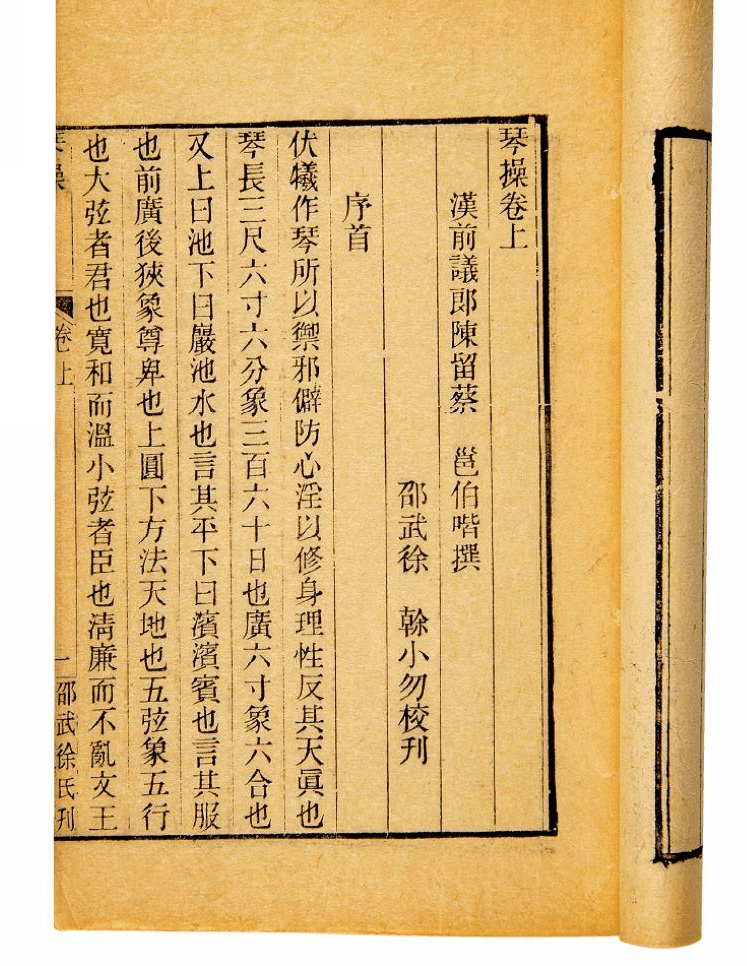 琴操卷上
漢前議郎陳留蔡　邕伯喈撰
邵武徐　榦小勿校刊
序首
伏犧作琴所以禦邪僻防心淫以修身理性反其天眞也
琴長三尺六寸六分象三百六十日也廣六寸象六合也
文上曰池下曰巖池水也言其平下曰濱濱賓也言其服
也前廣後狹象尊卑也上圓下方法天地也五弦象五行
也大弦者君也寬和而溫小弦者臣也淸廉而不亂文王
琴操　卷上　一　邵武徐氏刊